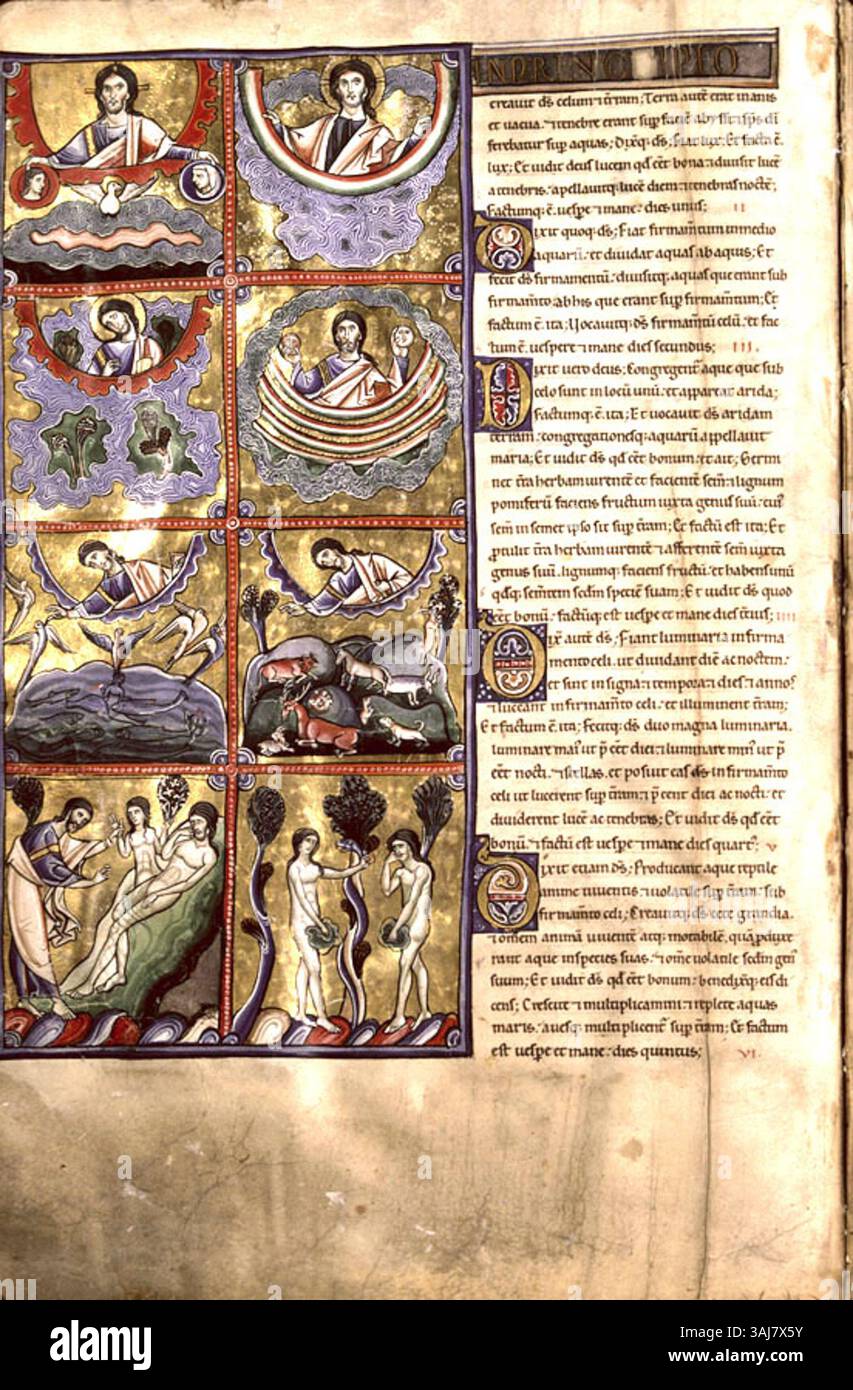 IN PRINCIPIO
creavit ds celum & t̄ram; Terra aut̄ erat inanis
et vacua. & tenebre erant sup̄ facie abyssi: & sp̄s dni
ferebatur sup aquas; Dixq; ds; Fiat lux; Et facta ē
lux; Et vidit deus lucem qd cēt bona: & divisit lucē
a tenebris. apellavitq; lucē diem: & tenebras noctē;
Factumq; ē vesp̄e & mane. dies unus; II
Dixit quoq; ds; Fiat firmamtum in medio
aquarū. et dividat aquas ab aquis; Et
fecit ds firmamentū. divisitq; aquas que erant sub
firmam̄to. ab his que erant sup̄ firmam̄tum; Et
factum ē. ita; Vocavitq; ds firmam̄tū celū. et fac
tum ē. vespere & mane dies secundus; III.
Dixit vero deus; Congregent̄ aque que sub
celo sunt in locū unū. et appareat arida;
Factumq; ē ita; Et vocavit ds aridam
terram. congregationesq; aquarū appellavit
maria; Et vidit ds qd cēt bonum. et ait; Germi
net t̄ra herbam virentē et facientē sem̄. & lignum
pomiferū faciens fructum iuxta genus suū. cui᾽
sem̄ in semet ipso sit sup t̄ram; Et factū est ita; Et
protulit t̄ra herbam virentē & afferentē sem̄ iuxta
genus suū. lignumq; faciens fructū. et habens unū
qdsq; sem̄tem sedm speciem suam; Et vidit ds quod
cēt bonū. factūq; est vesp̄e et mane dies t̄cius; IIII
Dix̄ aut̄ ds; Fiant luminaria in firma
mento celi. ut dividant diē ac noctem.
et sint in signa & tempora & dies & annos
& luceant in firmam̄to celi. et illuminent t̄ram;
Et factum ē ita; Fecitq; ds duo magna luminaria.
luminare mai᾽ ut p̄cēt diei: luminare min᾽ ut p̄
cēt nocti. & stellas. et posuit eas ds in firmam̄to
celi ut lucerent sup t̄ram: & p̄cent diei ac nocti. et
dividerent lucē ac tenebras; Et vidit ds qd cēt
bonū. & factū est vesp̄e & mane dies quart᾽; V
Dixit etiam ds; Producant aque reptile
anime viventis & volatile sup t̄ram. sub
firmam̄to celi; Creavitq; ds cete grandia.
& omem animā viventē atq; motabilē. quā pdux
rant aque in species suas. & om̄e volatile sedm gen᾽
suum; Et vidit ds qd cēt bonum. benedixq; eis di
cens; Crescite & multiplicamini & replete aquas
maris. avesq; multiplicent᾽ sup t̄ram; Et factum
est vesp̄e et mane. dies quintus; VI
alamy
Image ID: 3AJ7X5Y
www.alamy.com